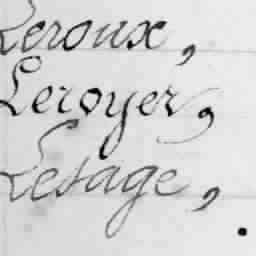 Leroux,
Leroyer,
Lesage,